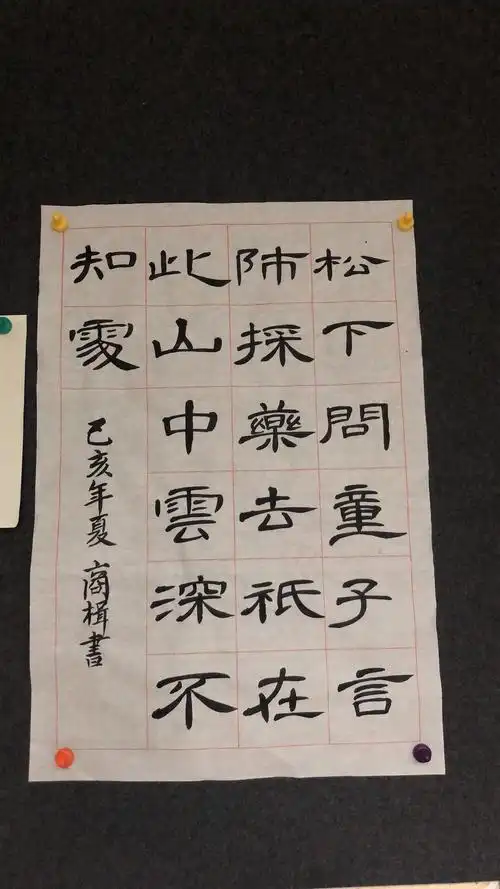 松下問童子言
師採藥去祇在
此山中雲深不
知處
己亥年夏 商楫書